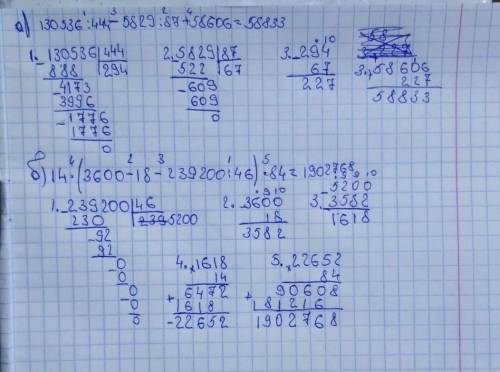 а) 130536 : 444 - 5829 : 87 + 58606 = 58833
1 3 2 4
1. 130536 | 444
888 | 294
- 4173
3996
- 1776
1776
0
2. 5829 | 87
522 | 67
- 609
609
0
3. 294
67
227
3. 58606
227
58833
б) 14 · (3600 - 18 - 239200 : 46) · 84 = 1902768
4 2 3 1 5
1. 239200 | 46
230 | 5200
- 92
92
- 0
0
- 0
0
2. 3600
18
3582
3. 5200
3582
1618
4. × 1618
14
+ 6472
1618
- 22652
5. × 22652
84
+ 90608
181216
1902768